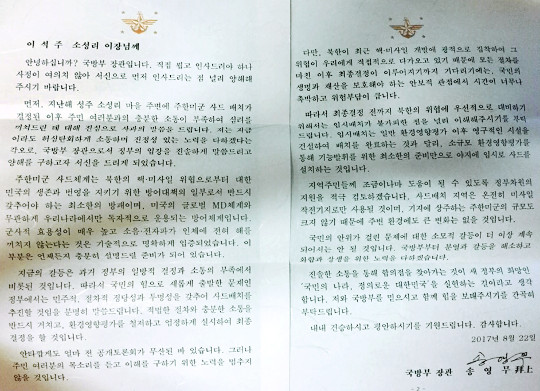 이 석 주 소성리 이장님께
안녕하십니까? 국방부 장관입니다. 직접 뵙고 인사드리야 하나
사정이 여의치 않아 서신으로 먼저 인사드리는 점 널리 양해해
주시기 바랍니다.
먼저, 지난해 성주 소성리 마을 주변에 주한미군 사드 배치가
결정된 이후 주민 여러분과의 충분한 소통이 부족하여 심려를
끼치드린 데 대해 진심으로 사과의 말씀을 드립니다. 저는 지금
이라도 허심탄회하게 소통하며 진정성 있는 노력을 다하겠다는
각오로, 국방부 장관으로서 정부의 입장을 진솔하게 말씀드리고
양해를 구하고자 서신을 드리게 되었습니다.
주한미군 사드체계는 북한의 핵·미사일 위협으로부터 대한
민국의 생존과 번영을 지키기 위한 방어대책의 일부로서 반드시
갖추어야 하는 최소한의 방패이며, 미국의 글로벌 MD체계와
무관하게 우리나라에서만 독자적으로 운용되는 방어체계입니다.
군사적 효용성이 매우 높고 소음·전자파가 인체에 전혀 해를
끼치지 않는다는 것은 기술적으로 명확하게 입증되었습니다. 이
부분은 언제든지 충분히 설명드릴 준비가 되어 있습니다.
지금의 갈등은 과거 정부의 일방적 결정과 소통의 부족에서
비롯된 것입니다. 따라서 국민의 힘으로 새롭게 출발한 문재인
정부에서는 민주적, 절차적 정당성과 투명성을 갖추어 사드배치를
추진할 것임을 분명히 말씀드립니다. 적법한 절차와 충분한 소통을
반드시 거치고, 환경영향평가를 철저하고 엄정하게 실시하여 최종
결정을 할 것입니다.
안타깝게도 얼마 전 공개토론회가 무산된 바 있습니다. 그러나
주민 여러분의 목소리를 듣고 이해를 구하기 위한 노력을 멈추지
않을 것입니다.
다만, 북한이 최근 핵·미사일 개발에 광적으로 집착하여 그
위협이 우리에게 직접적으로 다가오고 있기 때문에 모든 절차를
마친 이후 최종결정이 이루어지기까지 기다리기에는, 국민의
생명과 재산을 보호해야 하는 안보적 관점에서 시간이 너무나
촉박하고 위험부담이 큽니다.
따라서 최종결정 전까지 북한의 위협에 우선적으로 대비하기
위해서는 임시배치가 불가피한 점을 널리 이해해주시기를 부탁
드립니다. 임시배치는 일반 환경영향평가 이후 영구적인 시설을
건설하여 배치를 완료하는 것과 달리, 소규모 환경영향평가를
통해 기능발휘를 위한 최소한의 준비만으로 야지에 임시로 사드를
설치하는 것입니다.
지역주민들께 조금이나마 도움이 될 수 있도록 정부차원의
지원을 적극 검토하겠습니다. 사드배치 지역은 온전히 미사일
작전기지로만 사용될 것이며, 기지에 상주하는 주한미군의 규모도
크지 않기 때문에 주변 환경에도 큰 변화는 없을 것입니다.
국민의 안위가 걸린 문제에 대한 소모적 갈등이 더 이상 계속
되어서는 안 될 것입니다. 국방부부터 분열과 갈등을 해소하고
화합과 상생을 위한 노력을 다하겠습니다.
진솔한 소통을 통해 합의점을 찾아가는 것이 새 정부의 희망인
'국민의 나라, 정의로운 대한민국'을 실현하는 길이라고 생각
합니다. 저와 국방부를 믿으시고 함께 힘을 모아주시기를 간곡히
부탁드립니다.
내내 건승하시고 평안하시기를 기원드립니다. 감사합니다.
2017년 8월 22일
국방부 장관 송 영 무 拜上
- 2 -